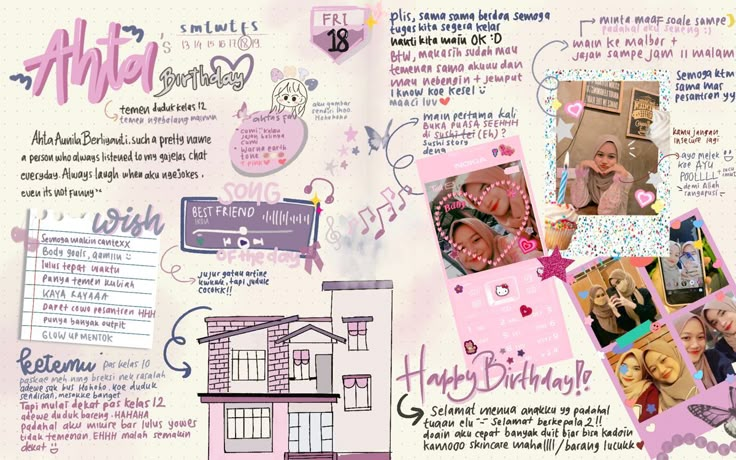 Ahta's
Birthday
s m t w t f s
13 14 15 16 17 18 19
FRI
18
temen duduk kelas 12
temen ngebolang mainmu
Ahta Aunila Berliyanti. such a pretty name
a person who always listened to my gajelas chat
everyday. Always laugh when aku ngejokes.
even its not funny
ahtas fav
cumi" kalau
jajan belinya
cumi
warna earth
tone
+ pink
aku gambar
sendiri lhoo
Hohohoho
SONG
BEST FRIEND
of the day
jujur gatau artine
kwkwk, tapi judule
cocokk!!
wish
Semoga makin cantexx
Body goals, aamiin
lulus tepat waktu
punya temen kuliah
KAYA RAYAAA
Dapet cowo pesantren HHH
punya banyak outfit
GLOW UP MENTOK
ketemu pas kelas 10
paskae meh nang breksi nek rasalah
adewe gek bus Hohoho. koe duduk
sendirian, mesakke banget
Tapi mulai dekat pas kelas 12
adewe duduk bareng -HAHAHA
padahal aku mikire bar lulus yowes
tidak temenan EHHH malah semakin
dekat
plis, sama sama berdoa semoga
tugas kita segera kelar
nanti kita main OK :D
Btw, makasih sudah mau
temenan sama akuuu dan
mau nebengin + jemput
I know koe kesel
maaci luv
main pertama kali
BUKA PUASA SEEHHH
di Sushi tei (Eh)?
Sushi story
deng
minta maaf soale sampe
padahal aku seneng :)
main ke malbor +
jajan sampe jam 11 malam
Semoga ktm
sama mas
pesantren yy
kamu jangan
insecure lagi
ayo melek
koe AYU
POOLLLL
demi Allah
rangapusi
NOKIA
Happy Birthday!!
Selamat menua anakku yg padahal
tuaan elu -- Selamat berkepala 2!!
doain aku cepat banyak duit biar bisa kadoin
kamooo skincare mahallll / barang lucukk